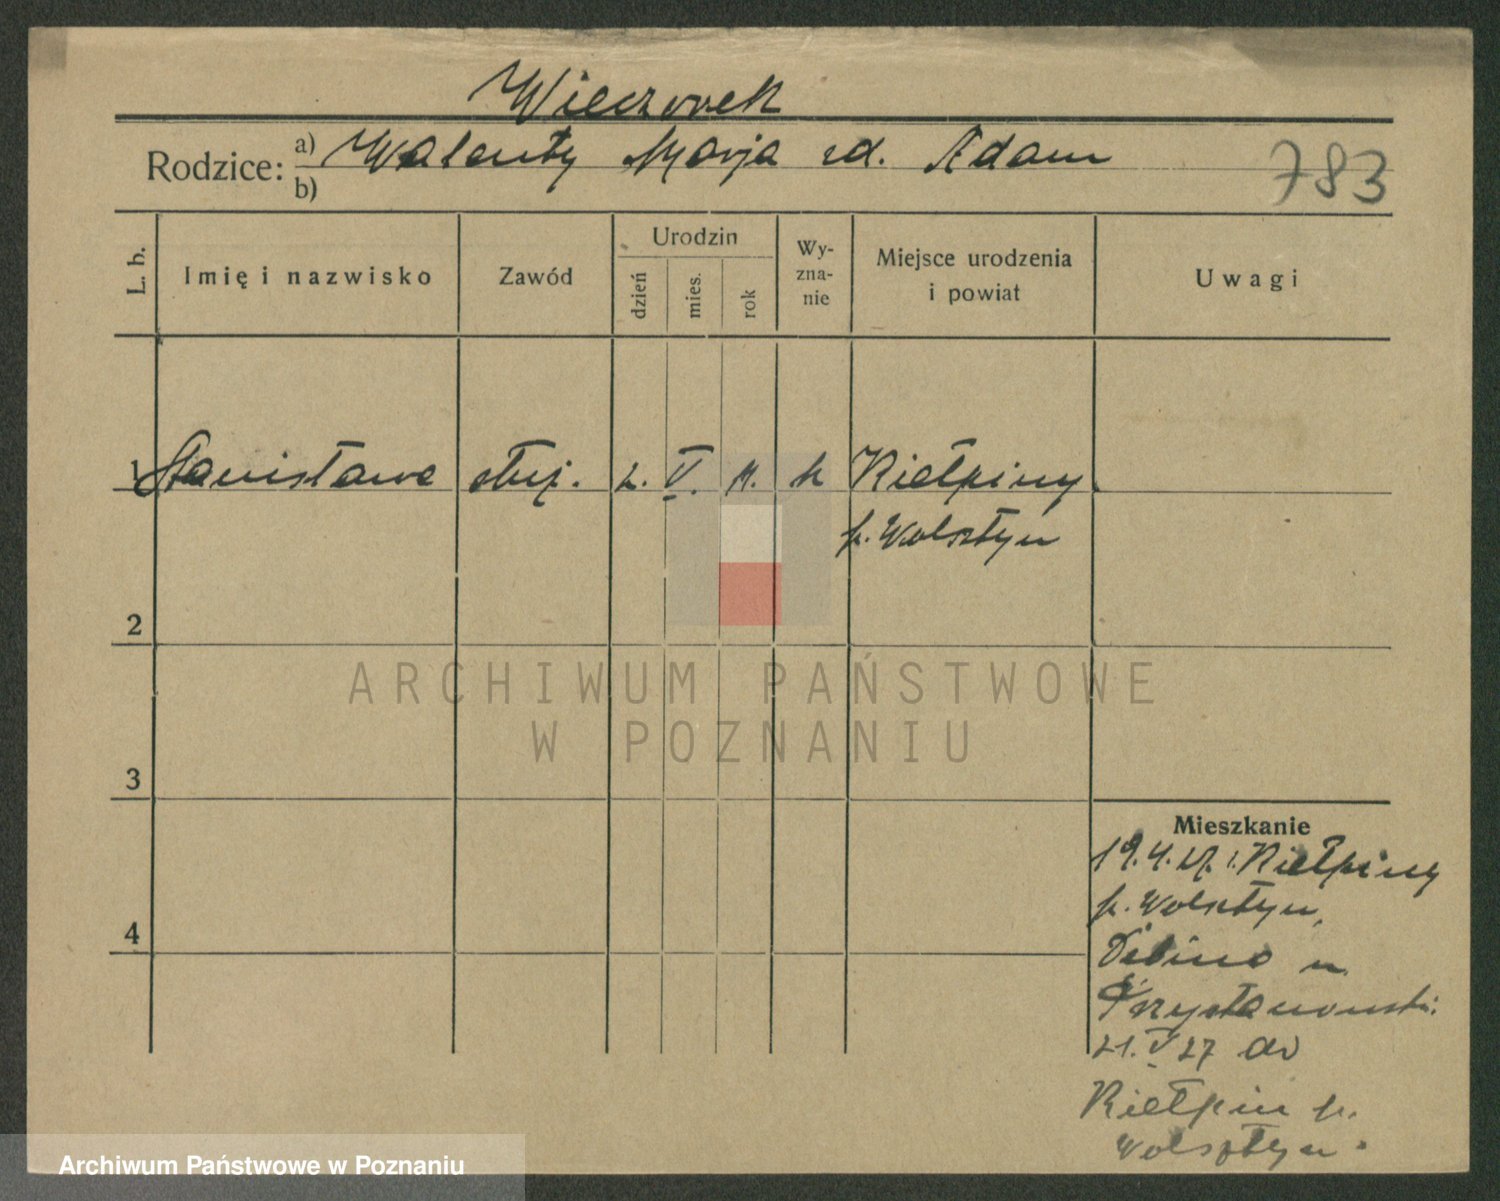 Wieczorek
Rodzice: a) Walenty Marja zd. Adam
b)
783
L. b.
Imię i nazwisko
Zawód
Urodzin
dzień
mies.
rok
Wy-
zna-
nie
Miejsce urodzenia
i powiat
Uwagi
1 Stanisława służ. 2. V. 11. k Kiełpiny
p. Wolsztyn
2
3
4
Mieszkanie
19.4.27. z Kiełpiny
p. Wolsztyn,
u
21. V 27 do
Kiełpin p.
Wolsztyn.
ARCHIWUM PAŃSTWOWE
W POZNANIU
Archiwum Państwowe w Poznaniu